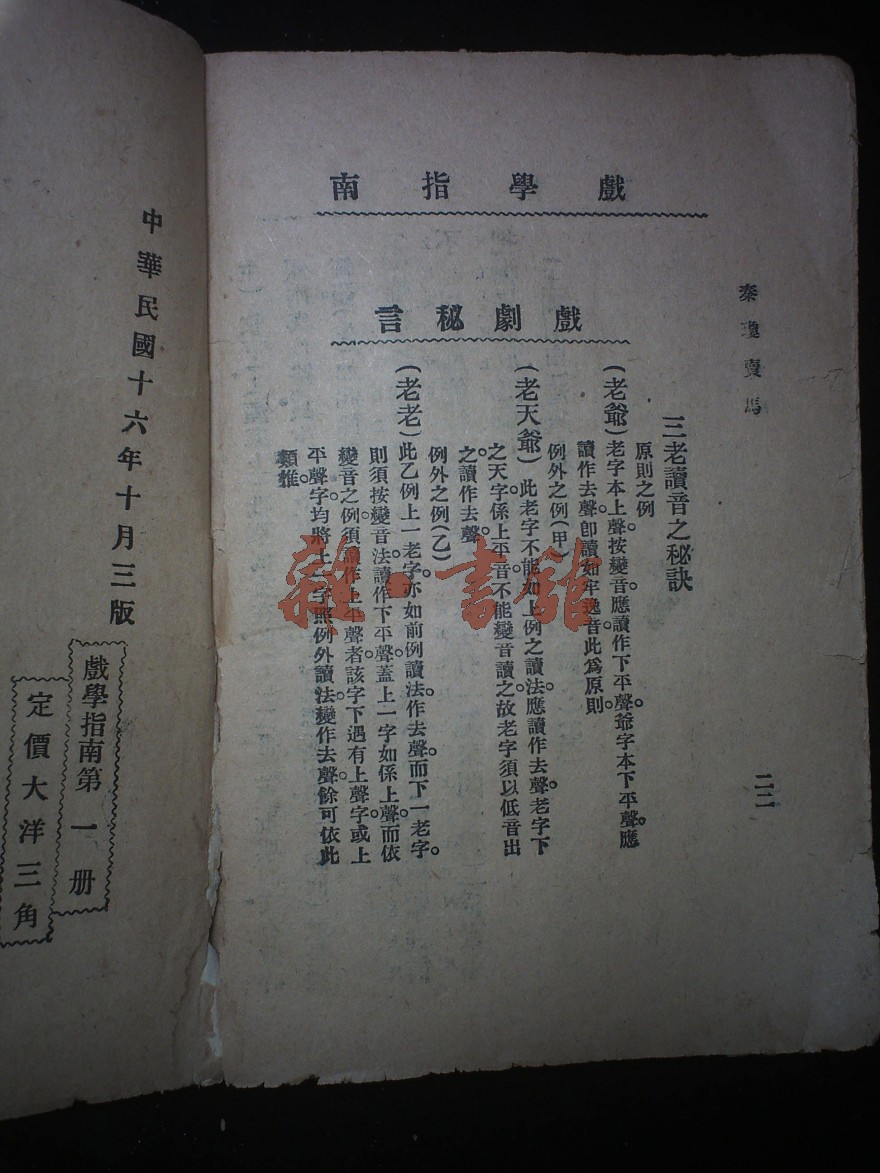 秦瓊賣馬
二二
戲學指南
戲劇秘言
三老讀音之秘訣
原則之例
(老爺)老字本上聲按變音應讀作下平聲爺字本下平聲應
讀作去聲卽讀如牢逸音此爲原則
例外之例(甲)
(老天爺)此老字不能如上例之讀法應讀作去聲老字下
之天字係上平音不能變音讀之故老字須以低音出
之讀作去聲
例外之例(乙)
(老老)此乙例上一老字亦如前例讀法作去聲而下一老字
則須按變音法讀作下平聲蓋上一字如係上聲而依
變音之例須讀作上平聲者該字下遇有上聲字或上
平聲字均將上一字照例外讀法變作去聲餘可依此
類推
中華民國十六年十月三版
戲學指南第一册
定價大洋三角
雜·書館